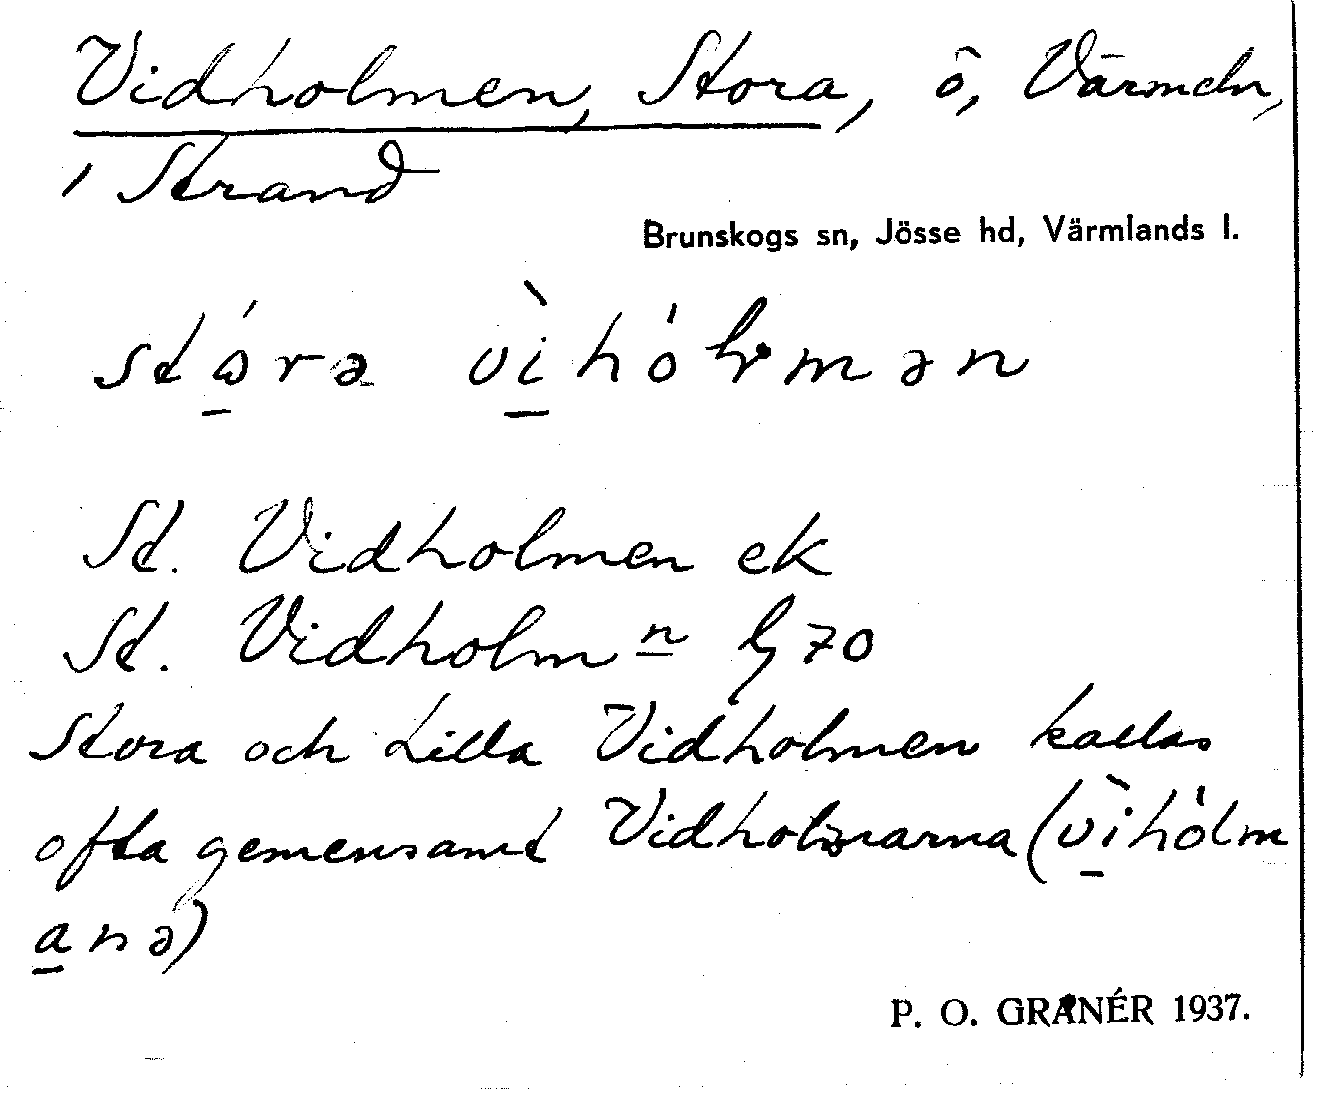 Vidholmen, Stora, ö, Värmeln,
i Strand
Brunskogs sn, Jösse hd, Värmlands l.
stóra vìhólmən
St. Vidholmen ek
St. Vidholmn 70
Stora och Lilla Vidholmen kallas
ofta gemensamt Vidholmarna (vìhólm
anə)
P. O. GRANÉR 1937.